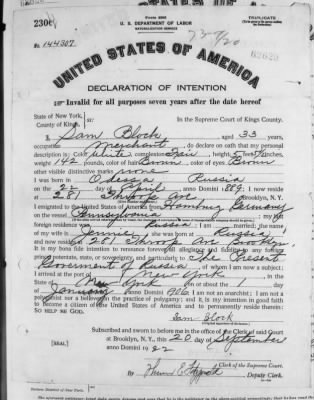 Form 2203
TRIPLICATE
U. S. DEPARTMENT OF LABOR
NATURALIZATION SERVICE
No. 144307
UNITED STATES OF AMERICA
DECLARATION OF INTENTION
Invalid for all purposes seven years after the date hereof
State of New York, ss: In the Supreme Court of Kings County.
County of Kings,
I, Sam Block, aged 33 years,
occupation Merchant, do declare on oath that my personal
description is: Color White, complexion Fair, height 5 feet inches,
weight pounds, color of hair Brown, color of eyes Brown
other visible distinctive marks none
I was born in Odessa Russia
on the 22 day of April, anno Domini 1889; I now reside
at 281 Ave, Brooklyn, N. Y.
I emigrated to the United States of America from Hamburg Germany
on the vessel Pennsylvania; my last
foreign residence was Russia; I am married; the name
of my wife is Jennie; she was born at Russia
and now resides at 281 Ave Brooklyn.
It is my bona fide intention to renounce forever all allegiance and fidelity to any foreign
prince, potentate, state, or sovereignty, and particularly to The Present
Government of Russia, of whom I am now a subject;
I arrived at the port of New-York, in the
State of New York, on or about the 1 day
of January, anno Domini 1906; I am not an anarchist; I am not a
polygamist nor a believer in the practice of polygamy; and it is my intention in good faith
to become a citizen of the United States of America and to permanently reside therein:
SO HELP ME GOD.
Sam Block
Subscribed and sworn to before me in the office of the Clerk of said Court
at Brooklyn, N. Y., this 20 day of September
[SEAL] anno Domini 1922
Clerk of the Supreme Court.
By Deputy Clerk.